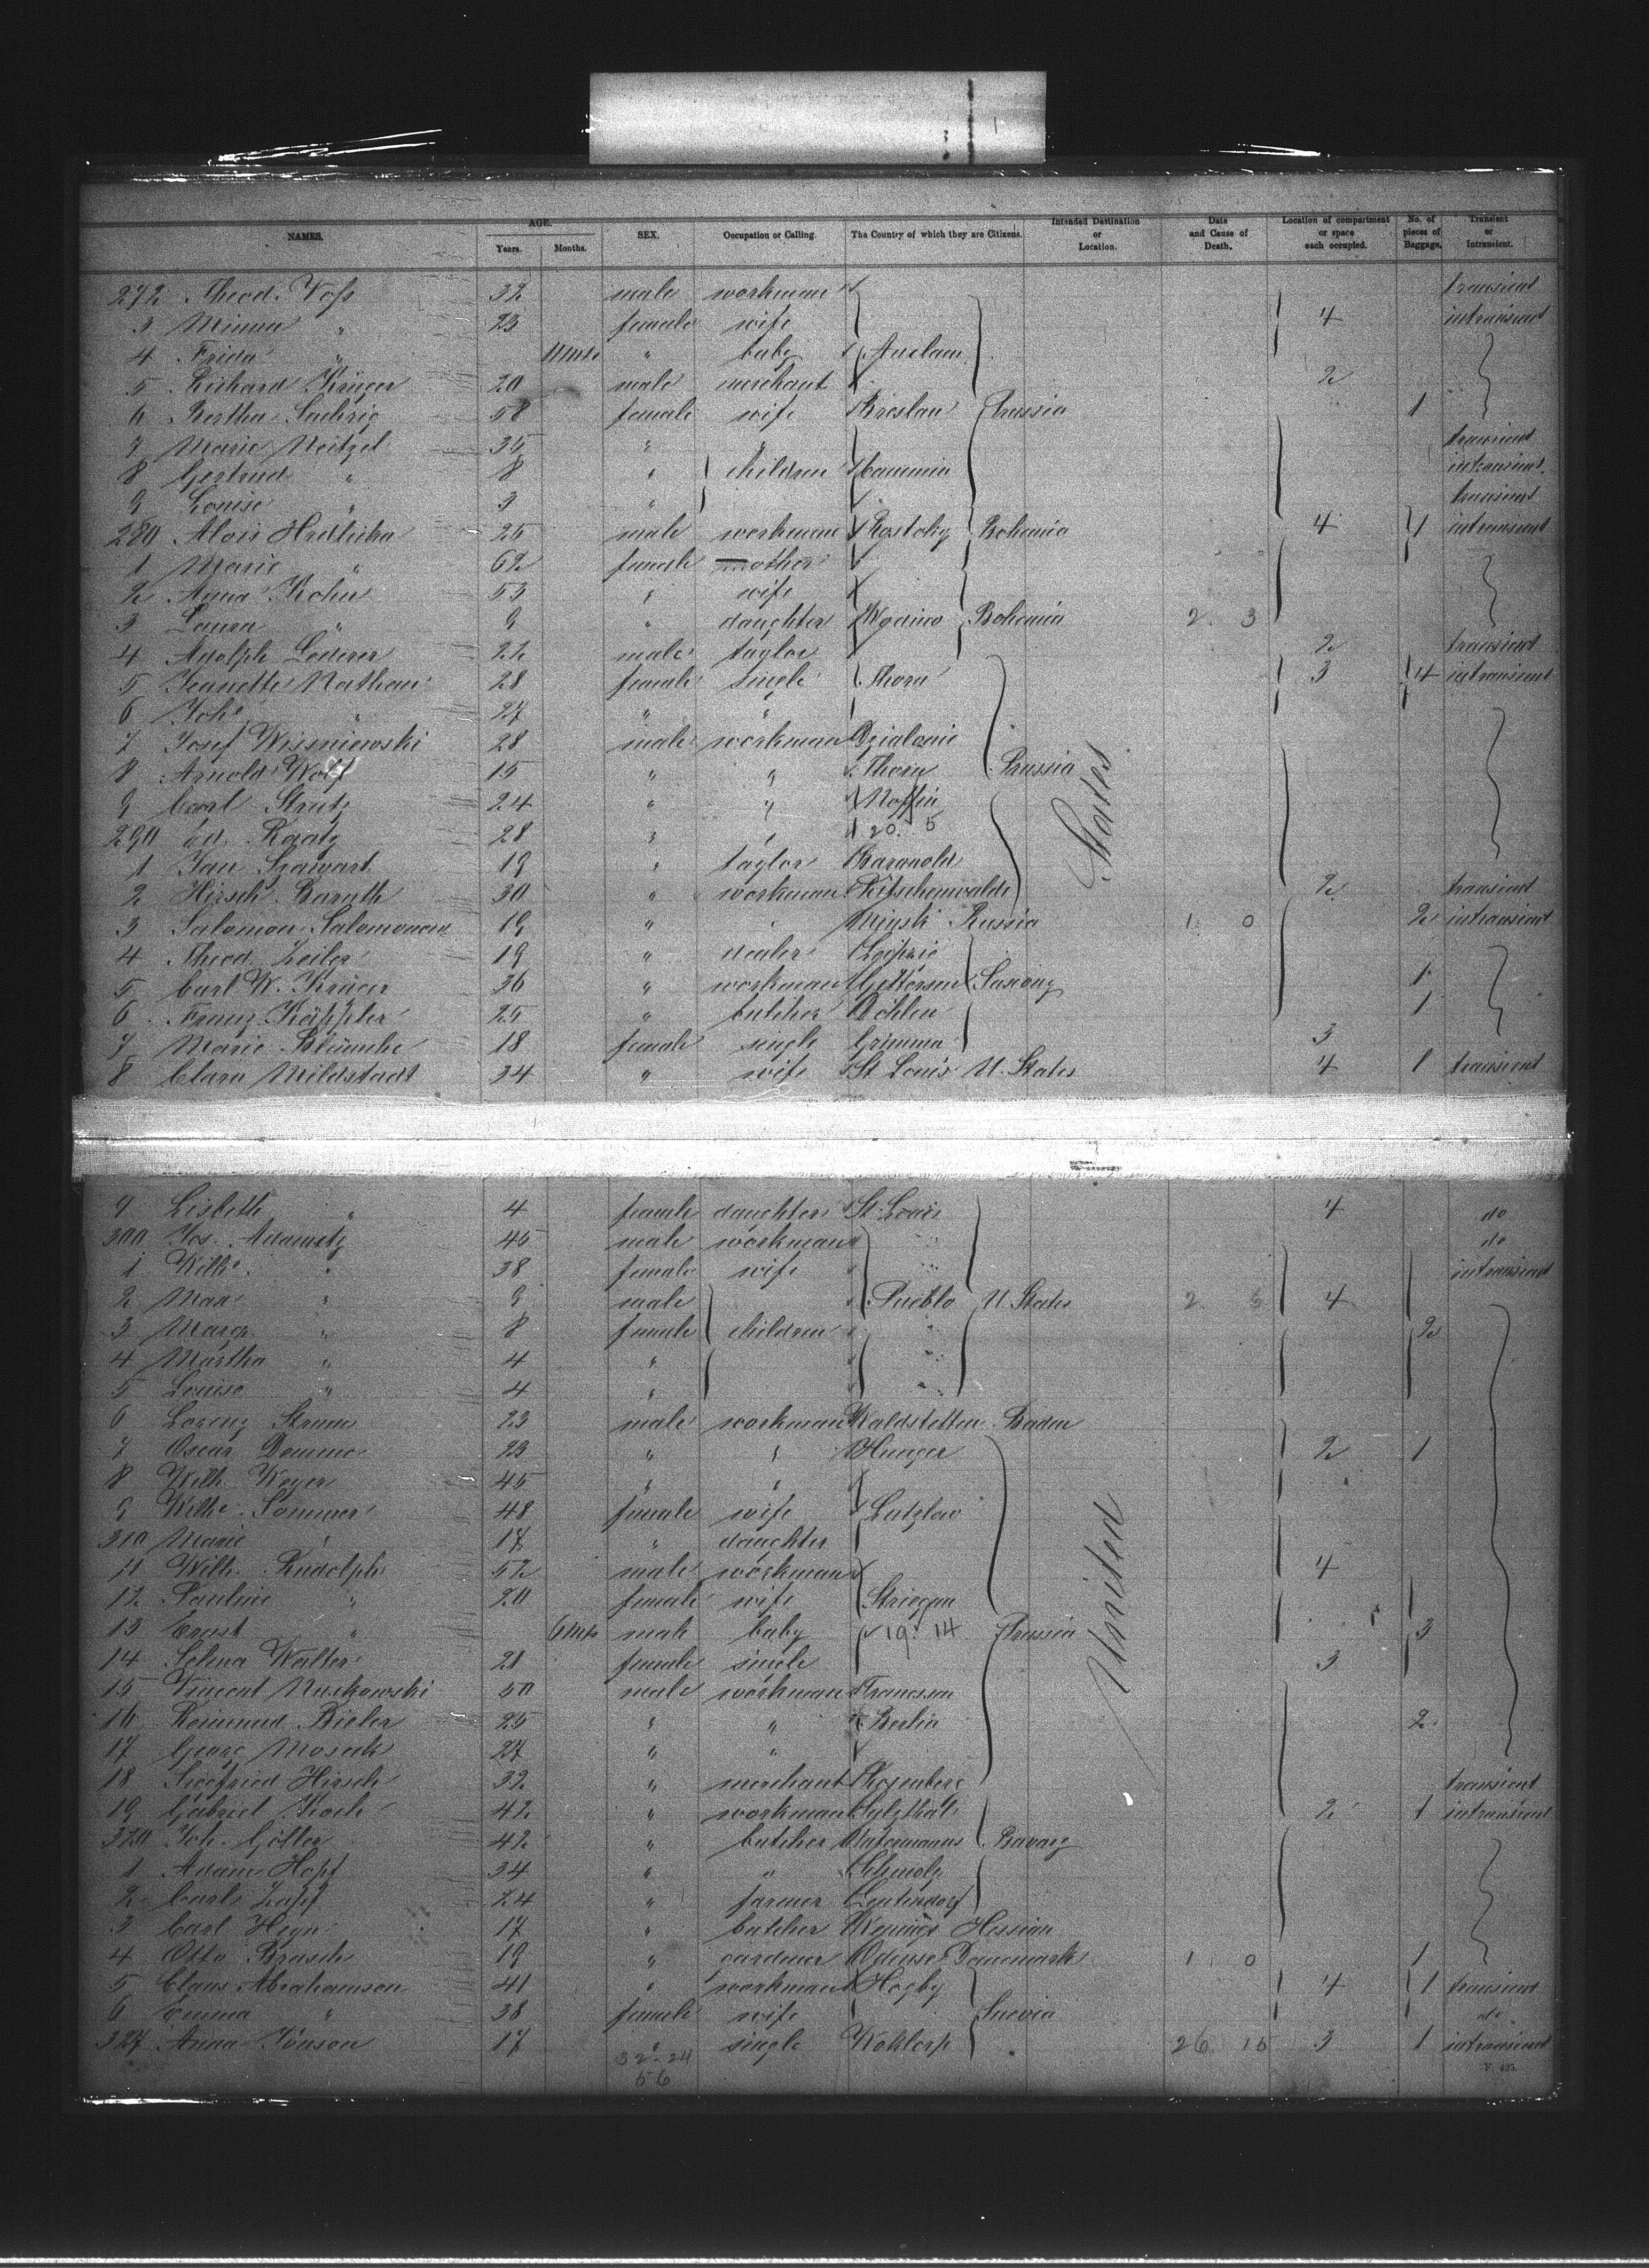 NAMES. AGE. Years. Months. SEX. Occupation or Calling. The Country of which they are Citizens. Intended Destination or Location. Date and Cause of Death. Location of compartment or space each occupied. No. of pieces of Baggage. Transient or Intransient.
272 Theod. Voss 32 male workman transient
3 Minna " 23 female wife 4 intransient
4 Frida " 11 mts " baby Anclam
5 Richard Krüger 20 male merchant 2
6 Bertha 58 female wife Breslau Prussia 1
7 Marie Neitzel 35 " " transient
8 Gertrud " 8 " children Cammin intransient
9 Louise " 3 " transient
280 Alois Hrdlicka 25 male workman Bohemia 4 4 intransient
1 Marie " 62 female mother
2 Anna Kohn 53 " wife
3 Laura " 9 " daughter Bohemia 2. 3
4 Adolph Lederer 22 male taylor 2 transient
5 Jeanette Nathan 28 female single Thorn 3 4 intransient
6 Joh. " 27 " "
7 Josef Wissniewski 28 male workman
8 Arnold Wolf 15 " " Thorn Prussia
9 Carl Strutz 24 " " States
290 Ed. Raatz 28 " " 20. 5
1 Jan 19 " taylor
2 Hirsch Baruth 30 " workman 2 transient
3 Salomon 19 " " Minsk Russia 1 0 2 intransient
4 Theod. Zeiler 19 " dealer Leipzic
5 Carl W. Krüger 36 " workman Saxony 1
6 Franz Käppler 25 " butcher Döhlen 1
7 Marie Blümche 18 female single Grimma 3
8 Clara Mildstadt 34 " wife St Louis U. States 4 1 transient
9 Lisbeth " 4 female daughter St. Louis 4 do
300 Jos. Adametz 45 male workman do
1 Wilhe. " 38 female wife intransient
2 Max " 9 male Pueblo U. States 2. 3 4
3 Margr. " 8 female children 2
4 Martha " 4 "
5 Louise " 4 "
6 Lorenz 23 male workman Waldstetten Baden
7 Oscar 23 " " Hunger 2 1
8 Wilh. Weger 45 " "
9 Wilhe. Sommer 48 female wife Latzlow
310 Marie " 17 " daughter United
11 Wilh. Rudolph 52 male workman 4
12 Pauline " 20 female wife Striegau
13 Ernst " 6 mts male baby 19. 14 Prussia 3
14 Selma Walter 21 female single 3
15 Vincent 50 male workman
16 Bieler 25 " " Berlin 2
17 Georg 27 " "
18 Siegfried Hirsch 32 " merchant Rosenberg transient
19 Gabriel Koch 42 " workman Sulzthal 2 1 intransient
320 Joh. Göller 42 " butcher Bavarg
1 Adam Hopf 34 " "
2 Carl Zapf 24 " farmer
3 Carl Heyn 17 " butcher Hessian
4 Otto Brasch 19 " gardener Odense Danemark 1 0 1
5 Claus Abrahamson 41 " workman Hogby 4 1 transient
6 Emma " 38 female wife Suevia do
327 Anna Jönson 17 " single 26 15 3 1 intransient
32 - 24
56
F. 425.